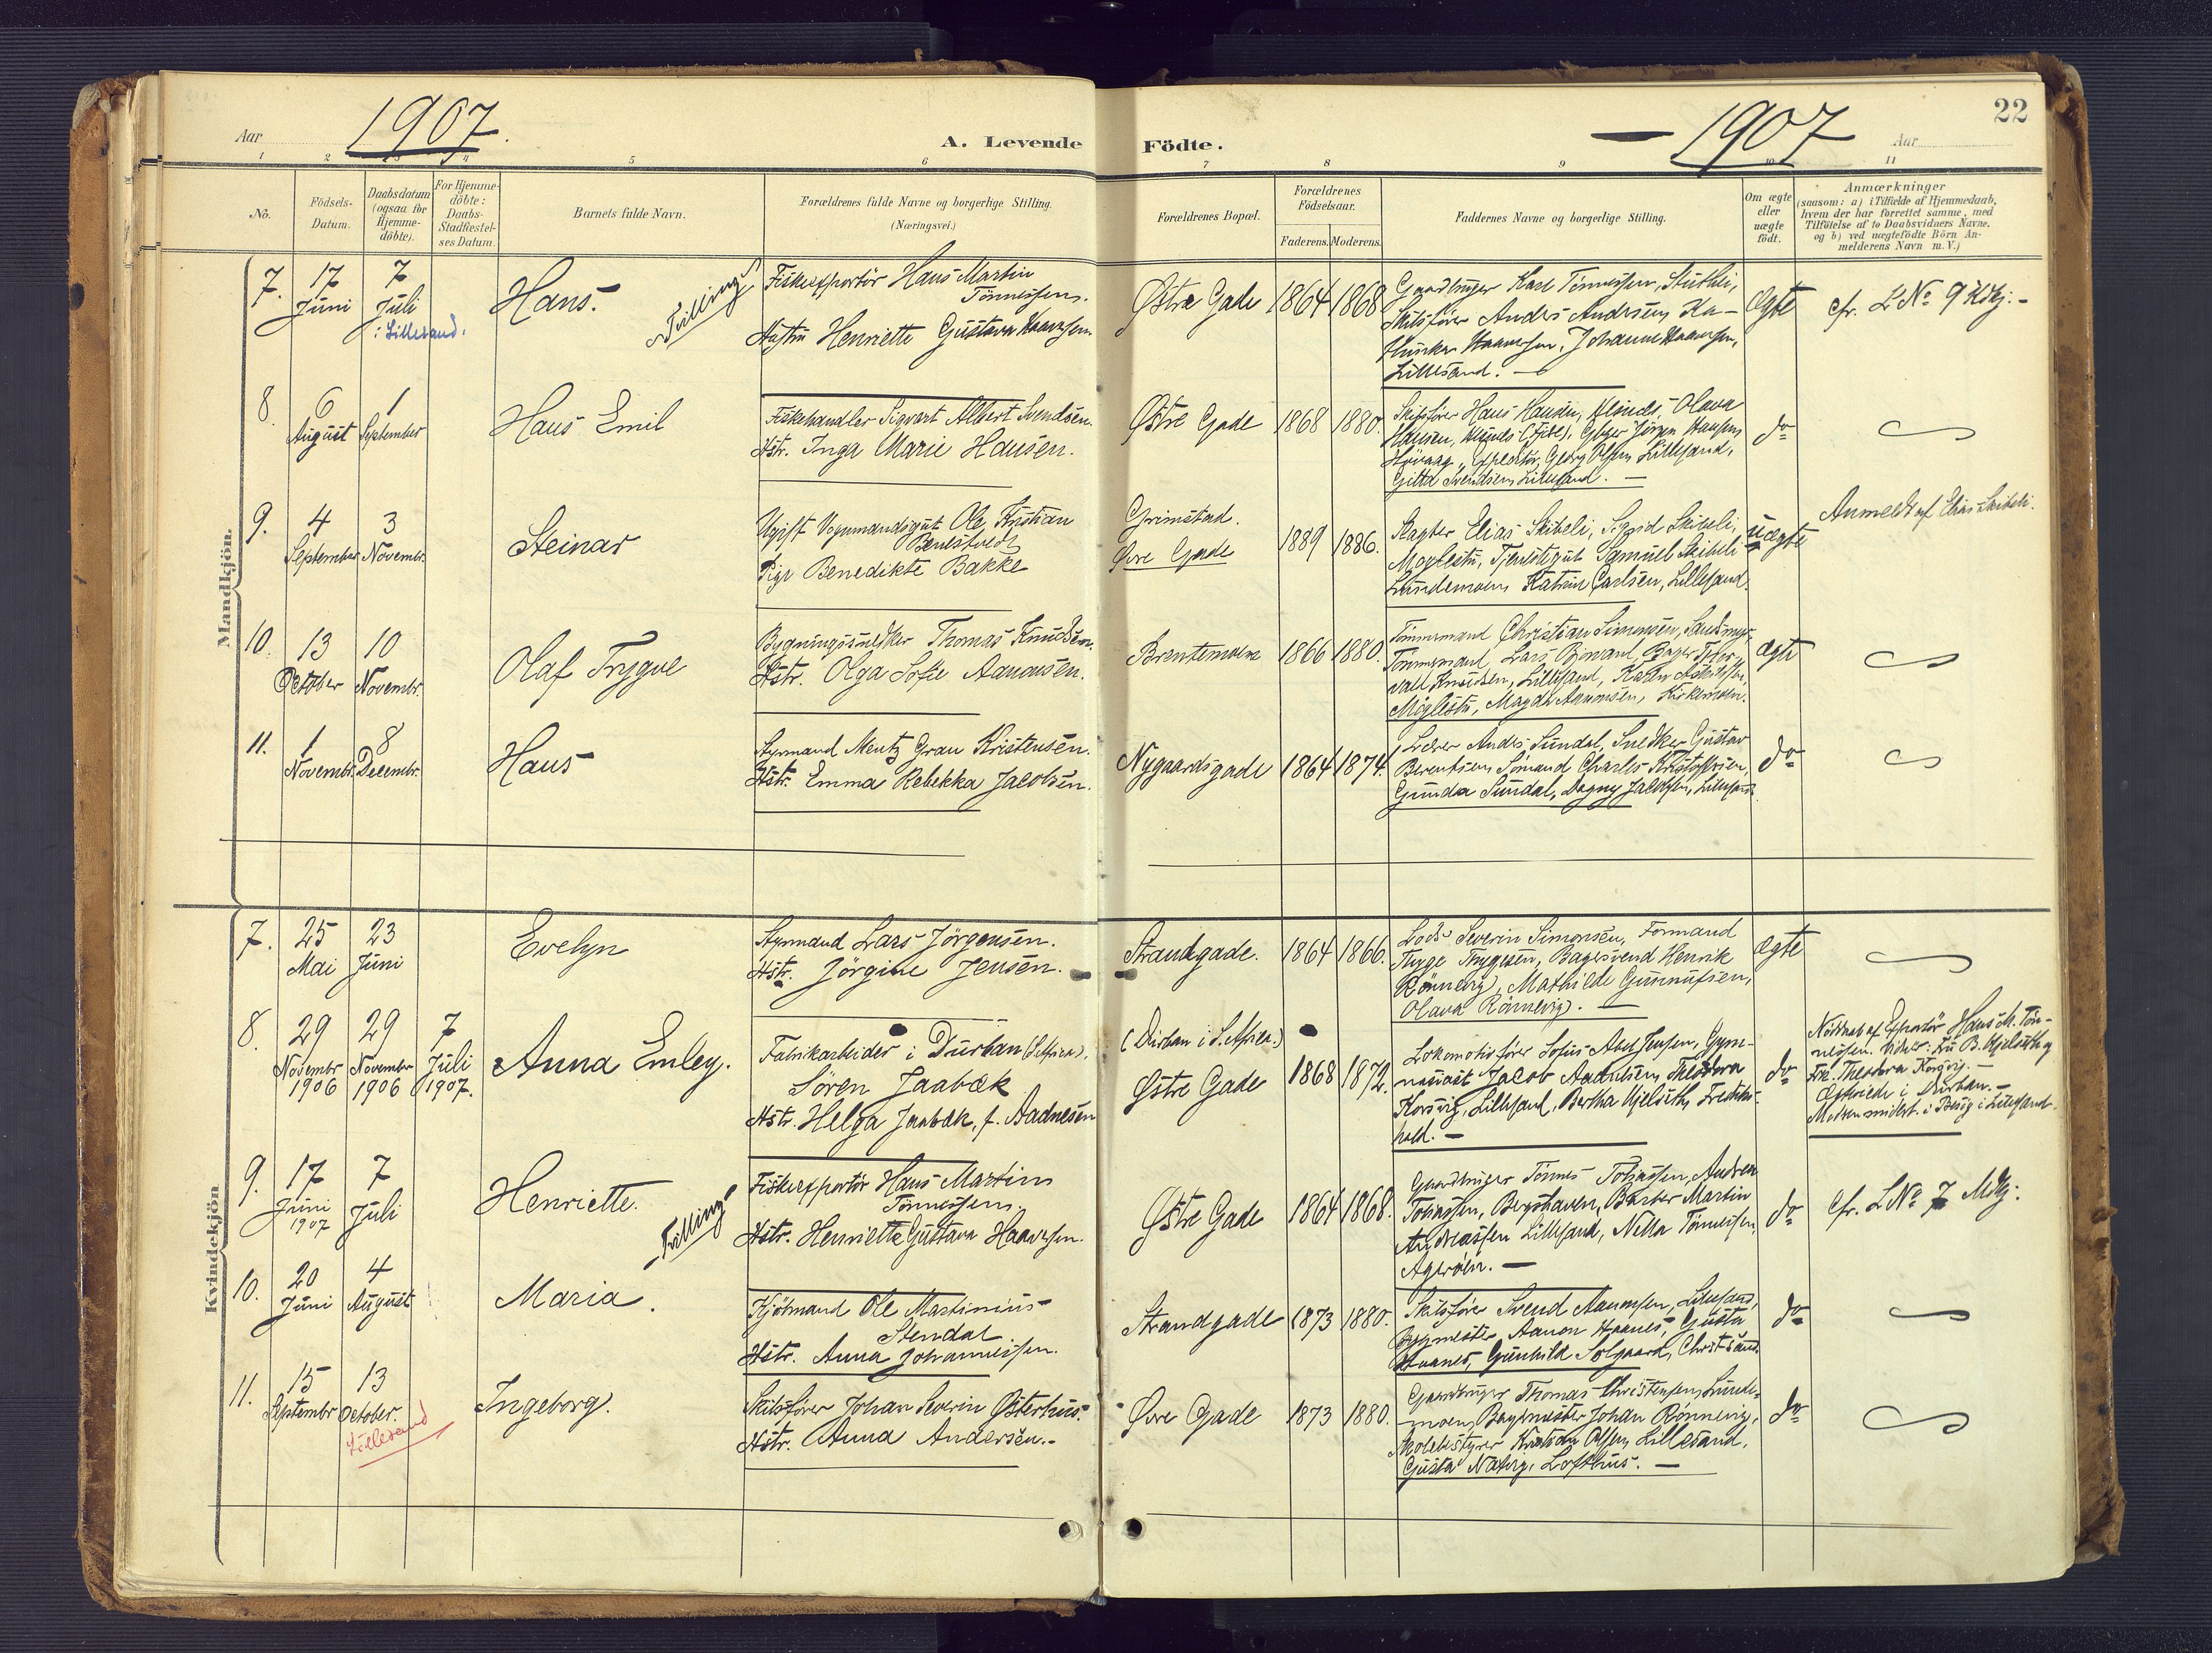 Aar 1907.
A. Levende Födte.
1907 Aar
22
1 2 3 4 5 6 7 8 9 10 11
No.
Födsels-
Datum.
Daabsdatum
(ogsaa for
Hjemme-
döbte).
For Hjemme-
döbte:
Daabs-
Stadfæstel-
ses Datum.
Barnets fulde Navn.
Forældrenes fulde Navne og borgerlige Stilling.
(Næringsvei.)
Forældrenes Bopæl.
Forældrenes
Födselsaar.
Faderens. Moderens.
Faddernes Navne og borgerlige Stilling.
Om ægte
eller
uægte
født.
Anmærkninger
(saasom: a) i Tilfælde af Hjemmedaab,
hvem der har forrettet samme, med
Tilföielse af to Daabsvidners Navne.
og b) ved uægtefödte Börn An-
melderens Navn m. V.)
Mandkjön.
7. 17 Juni
7 Juli
Lillesand.
Hans.
"Tvilling"
Fiskeexportör Hans Martin
Tönnessen.
Hustru Henriette Gustava Haavesen
Østre Gade 1864 1868
Gaardbruger Karl Tönnessen, Stutheli,
Skibsförer Anders Andersen, Ka-
Johanne Haavesen,
Lillesand. —
Ægte
cfr. L No 9 Kvkj. -
8. 6 August
1 September
Hans Emil
Fiskehandler Sigvart Albert Svendsen.
Hstr. Inga Marie Hansen.
Østre Gade 1868 1880.
Skibsförer Hans Hansen, Olava
Hansen, Jörgen Hansen
Hövaag, Georg Olsen Lillesand,
Gitta Svendsen Lillesand. —
do
9. 4 September
3 Novembr.
Steinar
Ugift Vognmandsgut Ole Kristian
Benestvedt
Pige Benedikte Bakke
Grimstad.
Øvre Gade
1889 1886.
Elias Skibeli, Sigrid Skibeli,
Moglestu, Tjenstegut Samuel Skibeli
Lundemoen Katrine Carlsen, Lillesand
Uægte
Anmeldt af Elias Skibeli.
10. 13 October
10 Novembr.
Olaf Trygve
Bygningssnedker Thomas Knudsen.
Hstr. Olga Sofie Aanonsen.
Brentemoen 1866 1880.
Tömmermand Christian Simonsen, Sandsmyr
Tömmermand Lars Bager Thor-
vald Knudsen, Lillesand, Karen
Möglestu, Magda Aanonsen, Kirkemoen.
ægte
11. 1 Novembr.
8 Decembr.
Hans
Styrmand Mentz Grau Kristensen.
Hstr. Emma Rebekka Jacobsen.
Nygaardsgade 1864 1874.
Lærer Anders Sundal, Snedker Gustav
Berentsen Sömand Charles Kristoffersen,
Gunda Sundal, Dagny Jacobsen, Lillesand.
do
Kvindekjön
7. 25 Mai
23 Juni
Evelyn
Styrmand Lars Jörgensen.
Hstr. Jörgine Jensen.
Strandgade. 1864 1866.
Lods Severin Simonsen, Formand
Thyge Thygesen, Bagersvend Henrik
Rönnevig, Mathilde Gunnufsen,
Olava Rönnevig. —
Ægte
8. 29 Novembr 1906
29 Novembr 1906
7 Juli 1907.
Anna Emley.
Fabrikarbeider i Durban (S. Afrika).
Sören Jaabæk
Hstr. Helga Jaabæk, f. Aadnesen
(Durban i S. Afrika.)
Østre Gade 1868 1872.
Lokomotivförer Sofus Abel Jensen, Gym-
nasiast Jacob Aadnesen, Theodora
Korsvig, Lillesand, Bertha Hjelseth, Fredriks-
hald. —
do
Nöddøbt af Exportör Hans M. Tön-
nessen. Vidner: Fru B. Hjelseth og
Frk. Theodora Korsvig. —
i Durban. —
Moderen midlert. i Besög i Lillesand.
9. 17 Juni 1907
7 Juli
Henriette.
"Tvilling"
Fiskeexportör Hans Martin
Tönnessen.
Hstr. Henriette Gustava Haavesen.
Østre Gade 1864 1868.
Gaardbruger Tönnes Tobiassen, Andrea
Tobiassen, Bergshaven, Barber Martin
Andreassen Lillesand, Nella Tönnessen,
Ageröen. —
do
cfr. L No 7 Mkj.
10. 20 Juni
4 August
Maria.
Kjöbmand Ole Martinius
Stendal
Hstr. Anna Johannessen.
Strandgade 1873 1880.
Skibsförer Svend Lillesand,
Bygmester Aanon Haanes, Gusta
Haanes, Gunhild Solgaard, Christsand.
do
11. 15 Septembr
13 October.
Lillesand
Ingeborg.
Skibsförer Johan Severin Østerhus.
Hstr. Anna Andersen. -
Øvre Gade 1873 1880.
Gaardbruger Thomas Christensen, Lunde-
moen, Bagermester Johan Rönnevig,
Skolebestyrer Kristian Olsen, Lillesand.
Gusta Lofthus. —
do